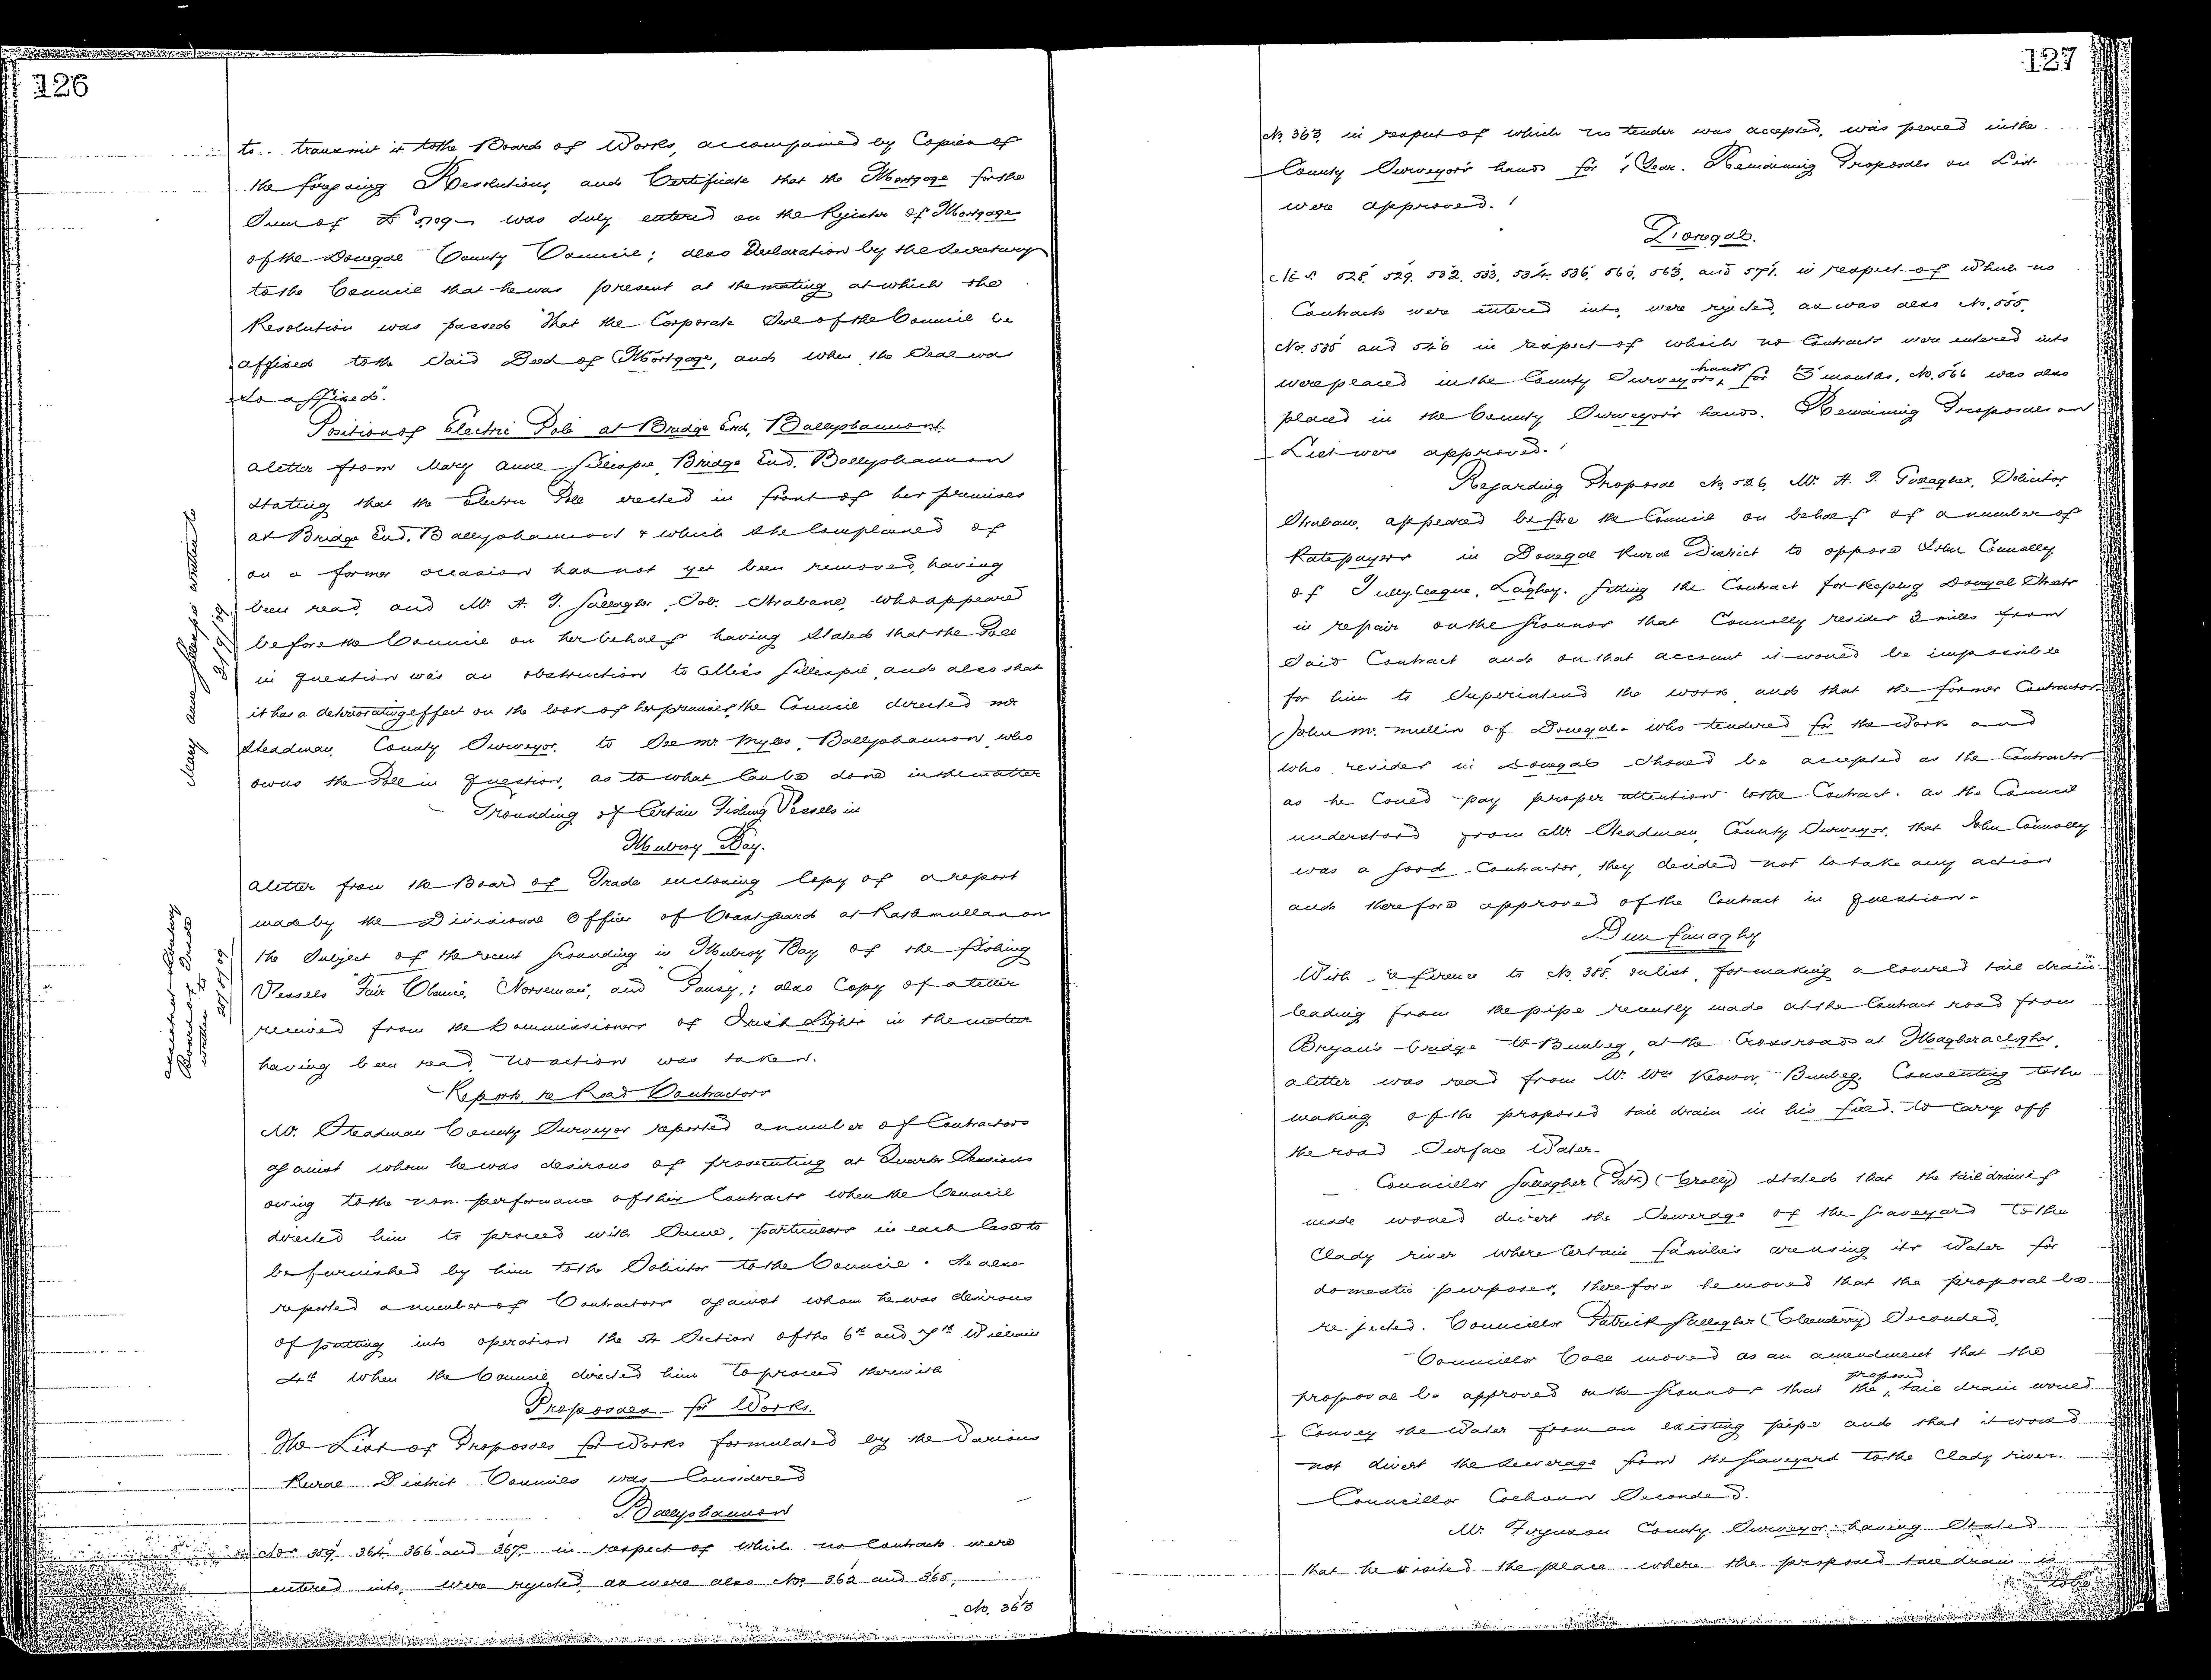 126
to transmit it to the Board of Works, accompanied by Copies of
the foregoing Resolutions, and Certificate that the Mortgage for the
Sum of £5709 was duly entered on the Register of Mortgages
of the Donegal County Council; also Declaration by the Secretary
to the Council that he was present at the meeting at which the
Resolution was passed "That the Corporate Seal of the Council be
affixed to the said Deed of Mortgage, and when the Seal was
so affixed".
Position of Electric Pole at Bridge End, Ballyshannon.
A letter from Mary Anne Gillespie, Bridge End, Ballyshannon
stating that the Electric Pole erected in front of her premises
at Bridge End, Ballyshannon & which she complained of
on a former occasion has not yet been removed, having
been read, and Mr. A. J. Gallagher, Solr. Strabane, who appeared
before the Council on her behalf having stated that the Pole
in question was an obstruction to Miss Gillespie, and also that
it has a deteriorating effect on the look of her premises, the Council directed Mr
Steadman, County Surveyor, to see Mr Myles, Ballyshannon, who
owns the Pole in question, as to what can be done in the matter
Mary Anne Gillespie written to
2/9/09
Grounding of Certain Fishing Vessels in
Mulroy Bay.
A letter from the Board of Trade enclosing Copy of a report
made by the Divisional Officer of Coast Guard at Rathmullan on
the subject of the recent grounding in Mulroy Bay of the fishing
Vessels "Fair Chance", "Norseman", and "Pansy"; also Copy of a letter
received from the Commissioners of Irish Lights in the matter
having been read, no action was taken.
Assistant Secretary
Board of Trade
written to
28/8/09
Reports re Road Contractors
Mr. Steadman County Surveyor reported a number of Contractors
against whom he was desirous of prosecuting at Quarter Sessions
owing to the non-performance of their Contracts when the Council
directed him to proceed with same, particulars in each case to
be furnished by him to the Solicitor to the Council. He also
reported a number of Contractors against whom he was desirous
of putting into operation the 54 Section of the 6th and 7th William
4th when the Council directed him to proceed therewith
Proposals for Works.
The List of Proposals for Works formulated by the various
Rural District Councils was Considered
Ballyshannon
Nos 359, 364, 366 and 367 in respect of which no Contracts were
entered into, were rejected, as were also Nos. 362 and 365.
No. 363
127
No. 363 in respect of which no tender was accepted, was placed in the
County Surveyor's hands for 1 Year. Remaining Proposals on List
were approved.
Donegal.
Nos. 528, 529, 532, 533, 534, 536, 560, 563, and 571, in respect of which no
Contracts were entered into, were rejected, as was also No. 555.
No. 535 and 546 in respect of which no Contracts were entered into
were placed in the County Surveyors hands for 3 months. No. 566 was also
placed in the County Surveyor's hands. Remaining Proposals on
List were approved.
Regarding Proposal No. 526, Mr. A. J. Gallagher, Solicitor
Strabane, appeared before the Council on behalf of a number of
Ratepayers in Donegal Rural District to oppose John Connolly
of Tullyleague, Laghey, getting the Contract for keeping Donegal Streets
in repair on the grounds that Connolly resides 3 miles from
said Contract and on that account it would be impossible
for him to Superintend the work and that the former Contractor
John Mc. Mullin of Donegal who tendered for the work and
who resides in Donegal should be accepted as the Contractor
as he could pay proper attention to the Contract. As the Council
understood from Mr. Steadman, County Surveyor, that John Connolly
was a good Contractor, they decided not to take any action
and therefore approved of the Contract in question.
Dunfanaghy
With reference to No. 388 on list, for making a covered tail drain
leading from the pipe recently made at the Contract road from
Bryan's bridge to Bunbeg, at the Crossroads at Magheraclogher,
a letter was read from Mr. Wm Keown, Bunbeg, Consenting to the
making of the proposed tail drain in his field, to carry off
the road Surface Water.
Councillor Gallagher (Patk) (Crolly) stated that the tail drain if
made would divert the sewerage of the graveyard to the
Clady river where certain families are using its Water for
domestic purposes, therefore he moved that the proposal be
rejected. Councillor Patrick Gallagher (Cleendery) Seconded.
Councillor Coll moved as an amendment that the
proposal be approved on the grounds that the proposed tail drain would
Convey the Water from an existing pipe and that it would
not divert the sewerage from the graveyard to the Clady river.
Councillor Colhoun Seconded.
Mr. Ferguson County Surveyor having stated
that he visited the place where the proposed tail drain is
to be